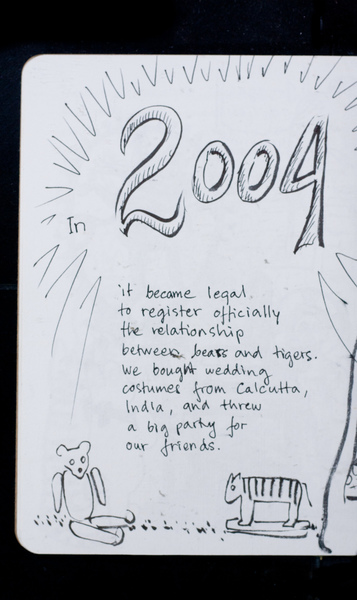 In
2004
it became legal
to register officially
the relationship
between bears and tigers.
We bought wedding
costumes from Calcutta,
India, and threw
a big party for
our friends.